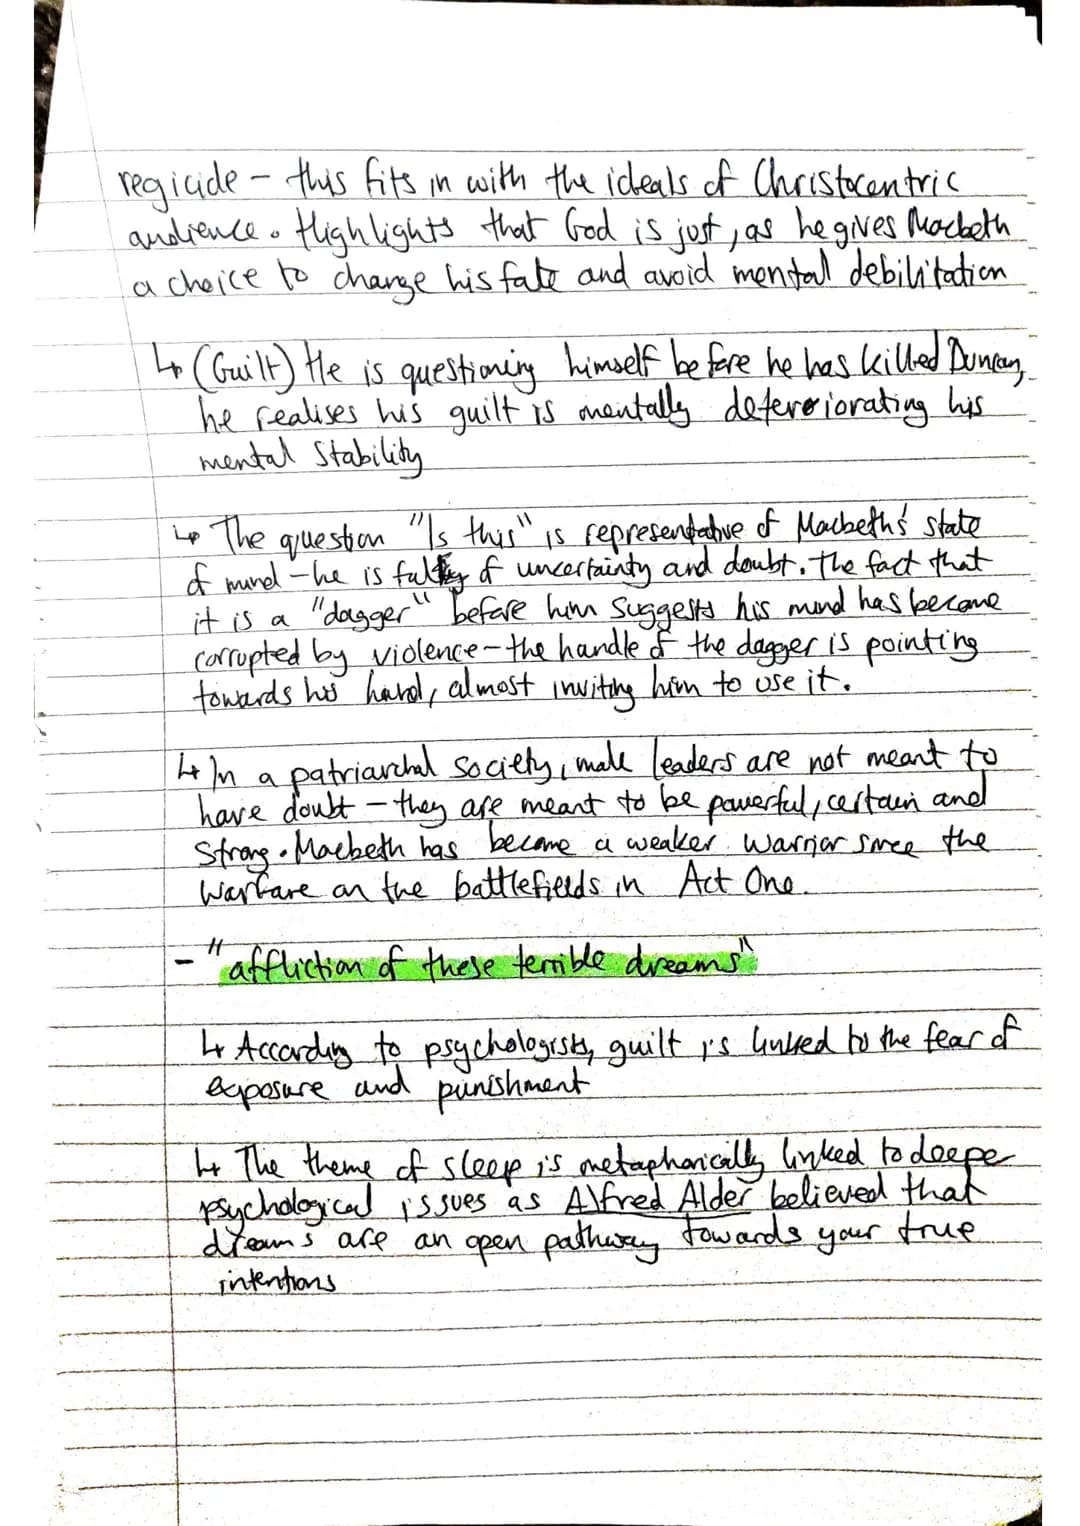 regicide - this fits in with the ideals of Christocentric
audience. Highlights that God is just, as he gives Macbeth
a choice to change his fate and avoid mental debilitation
↳ (Guilt) He is questioning himself before he has killed Duncan,
he realises his guilt is mentally detereriorating his
mental stability
↳ The question "Is this" is representative of Macbeth's state
of mind - he is of uncertainty and doubt. The fact that
it is a "dagger" before him suggests his mind has become
corrupted by violence - the handle of the dagger is pointing
towards his hand, almost inviting him to use it.
↳ In a patriarchal society, male leaders are not meant to
have doubt - they are meant to be powerful, certain and
strong. Macbeth has become a weaker warrior since the
warfare on the battlefields in Act One.
- "affliction of these terrible dreams"
↳ According to psychologists, guilt is linked to the fear of
exposure and punishment
↳ The theme of sleep is metaphorically linked to deeper
psychological issues as Alfred Alder believed that
dreams are an open pathway towards your true
intentions